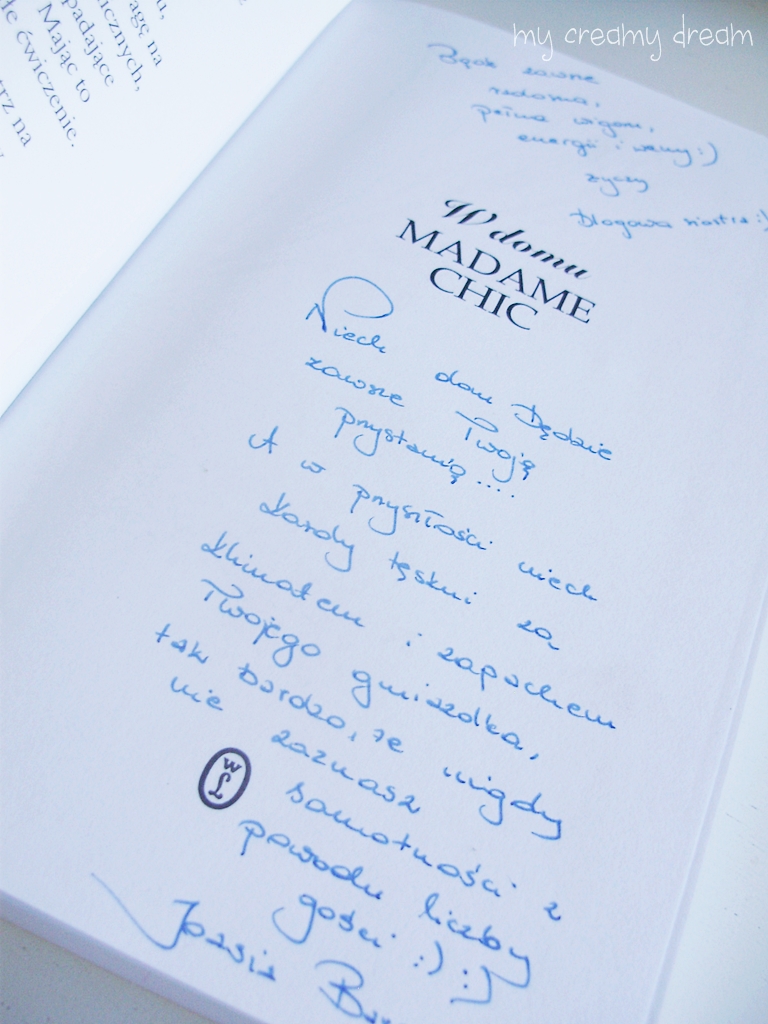 my creamy dream
u,
agę na
acznych,
padające
Mając to
łe ćwiczenie.
rz na
Bądź zawsze
radosna,
pełna wigoru,
energii i weny :)
życzy
blogowa siostra :)
W domu
MADAME
CHIC
Niech dom będzie
zawsze Twoją
przystanią....
A w przyszłości niech
każdy tęskni za
klimatem i zapachem
Twojego gniazdka,
tak bardzo, że nigdy
nie zaznasz
samotności z
powodu liczby
gości :) :)
WL
Joasia